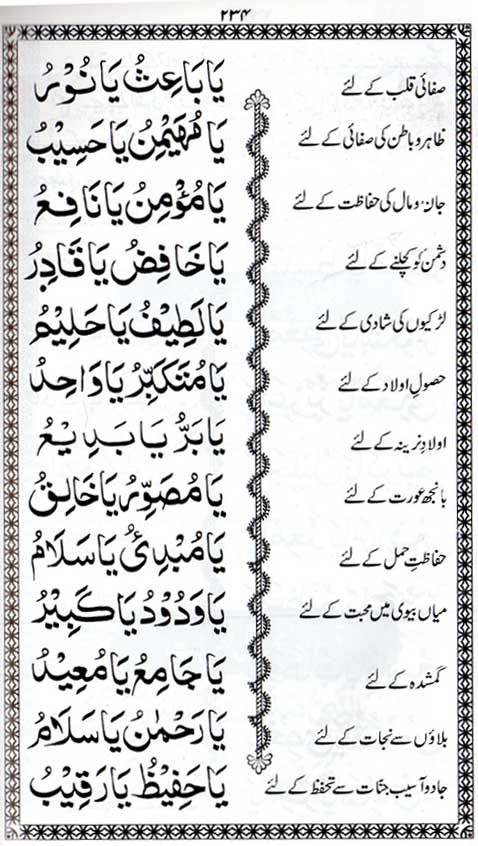 ۲۳۴
صفائی قلب کے لئے يَا بَاعِثُ يَا نُوْرُ
ظاہر و باطن کی صفائی کے لئے يَا مُهَيْمِنُ يَا حَسِيْبُ
جان و مال کی حفاظت کے لئے يَا مُؤْمِنُ يَا نَافِعُ
دشمن کو کچلنے کے لئے يَا خَافِضُ يَا قَادِرُ
لڑکیوں کی شادی کے لئے يَا لَطِيْفُ يَا حَلِيْمُ
حصولِ اولاد کے لئے يَا مُتَكَبِّرُ يَا وَاحِدُ
اولادِ نرینہ کے لئے يَا بَرُّ يَا بَدِيْعُ
بانجھ عورت کے لئے يَا مُصَوِّرُ يَا خَالِقُ
حفاظتِ حمل کے لئے يَا مُبْدِئُ يَا سَلَامُ
میاں بیوی میں محبت کے لئے يَا وَدُوْدُ يَا كَبِيْرُ
گمشدہ کے لئے يَا جَامِعُ يَا مُعِيْدُ
بلاؤں سے نجات کے لئے يَا رَحْمٰنُ يَا سَلَامُ
جادو آسیب جنّات سے تحفظ کے لئے يَا حَفِيْظُ يَا رَقِيْبُ